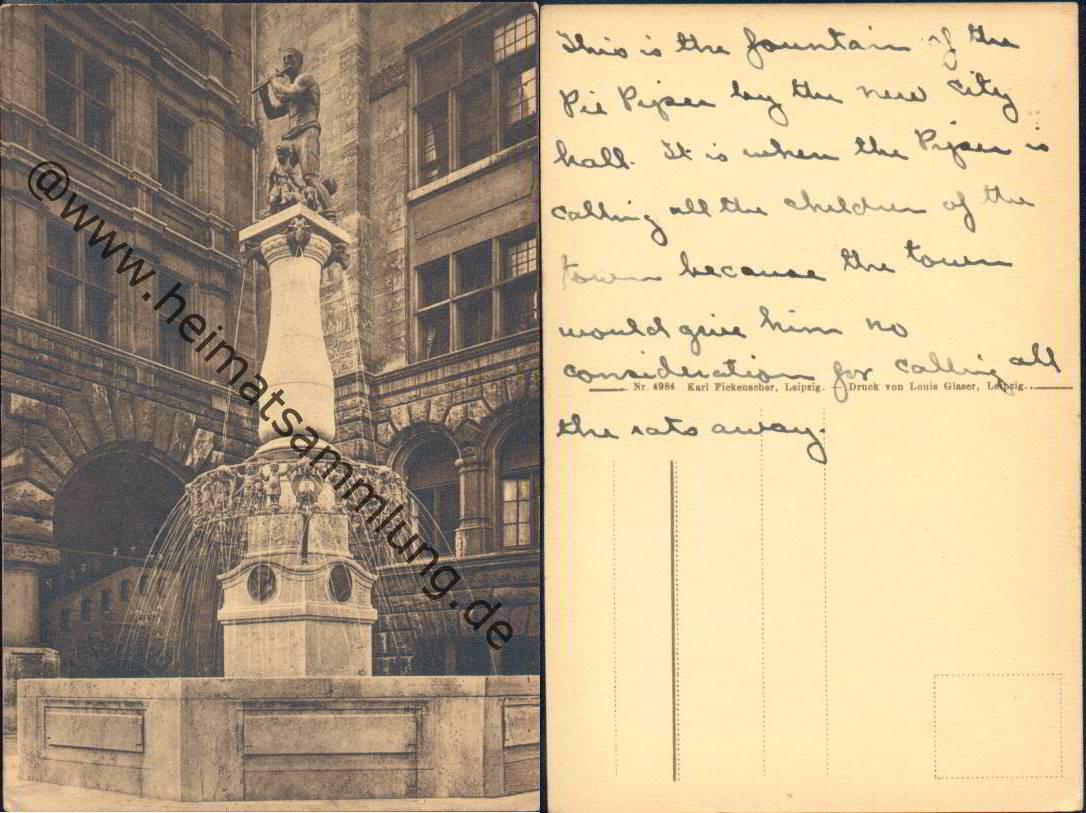 @www.heimatsammlung.de
This is the fountain of the
Pie Piper by the new City
hall. It is when the Piper is
calling all the children of the
town because the town
would give him no
consideration for calling all
Nr. 4984 Karl Fickenscher, Leipzig. Druck von Louis Glaser, Leipzig.
the rats away.